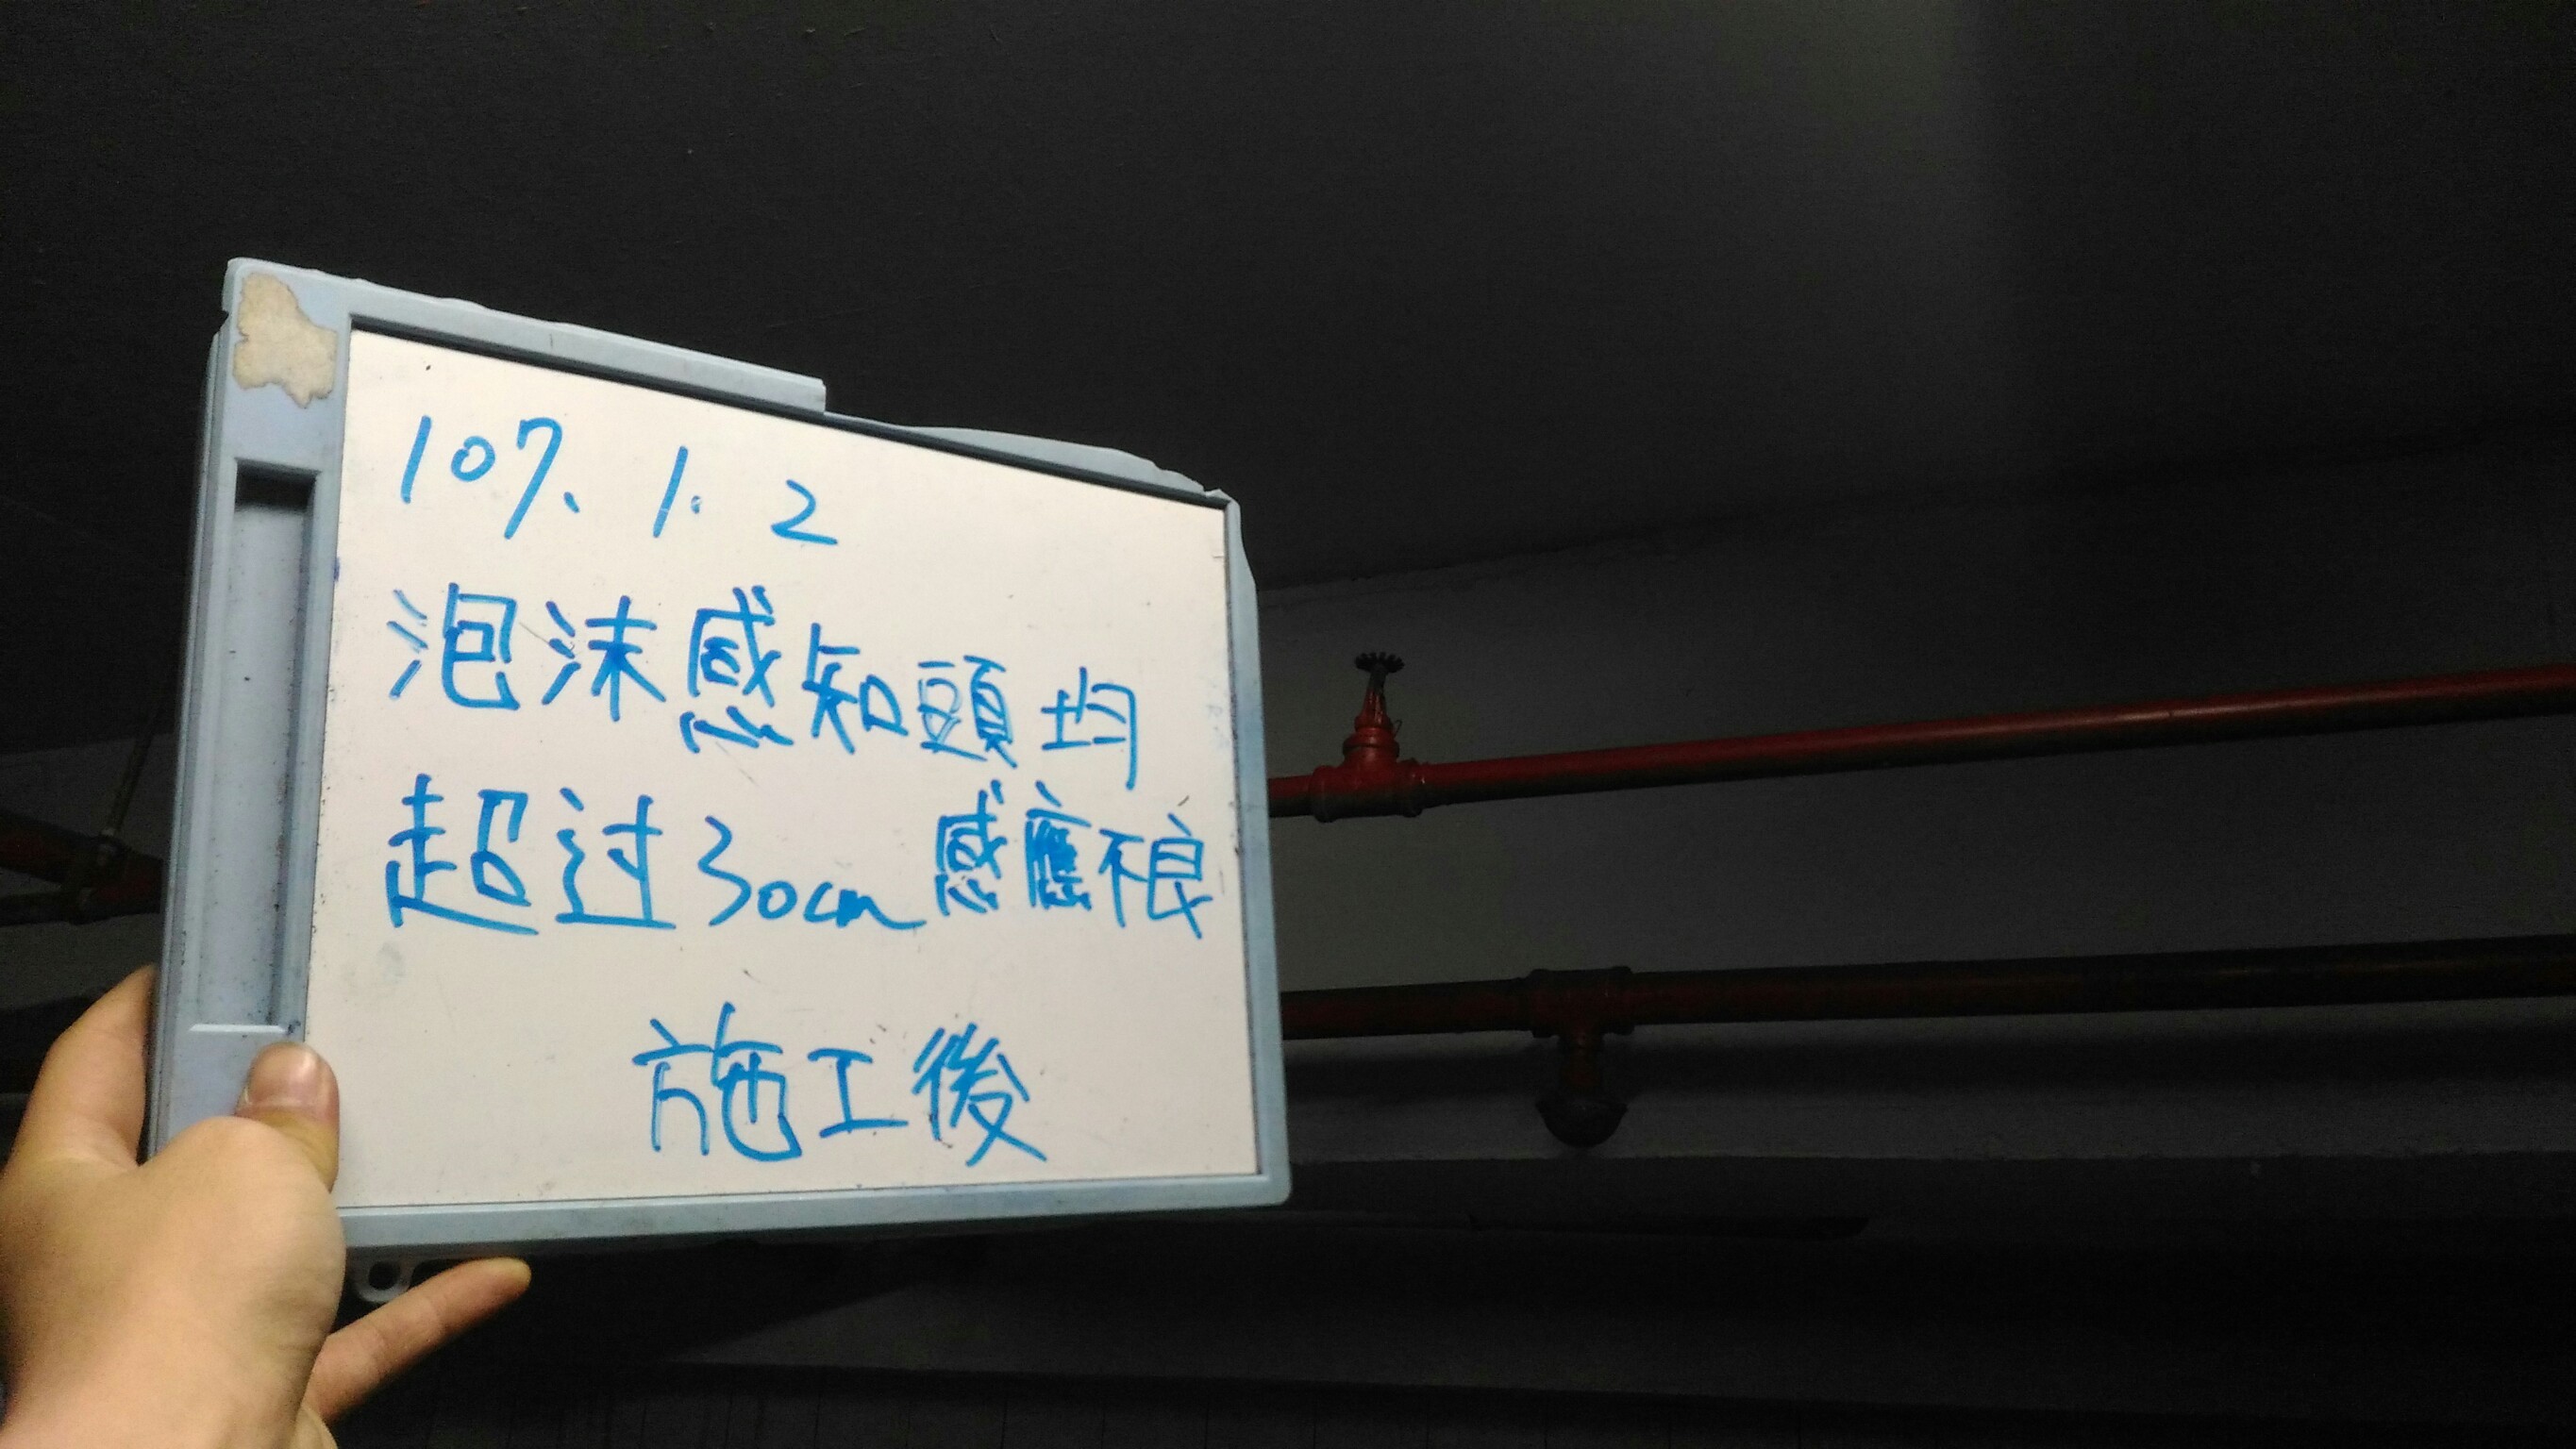 107、1. 2
泡沫感知頭均
超过30cm感應不良
施工後